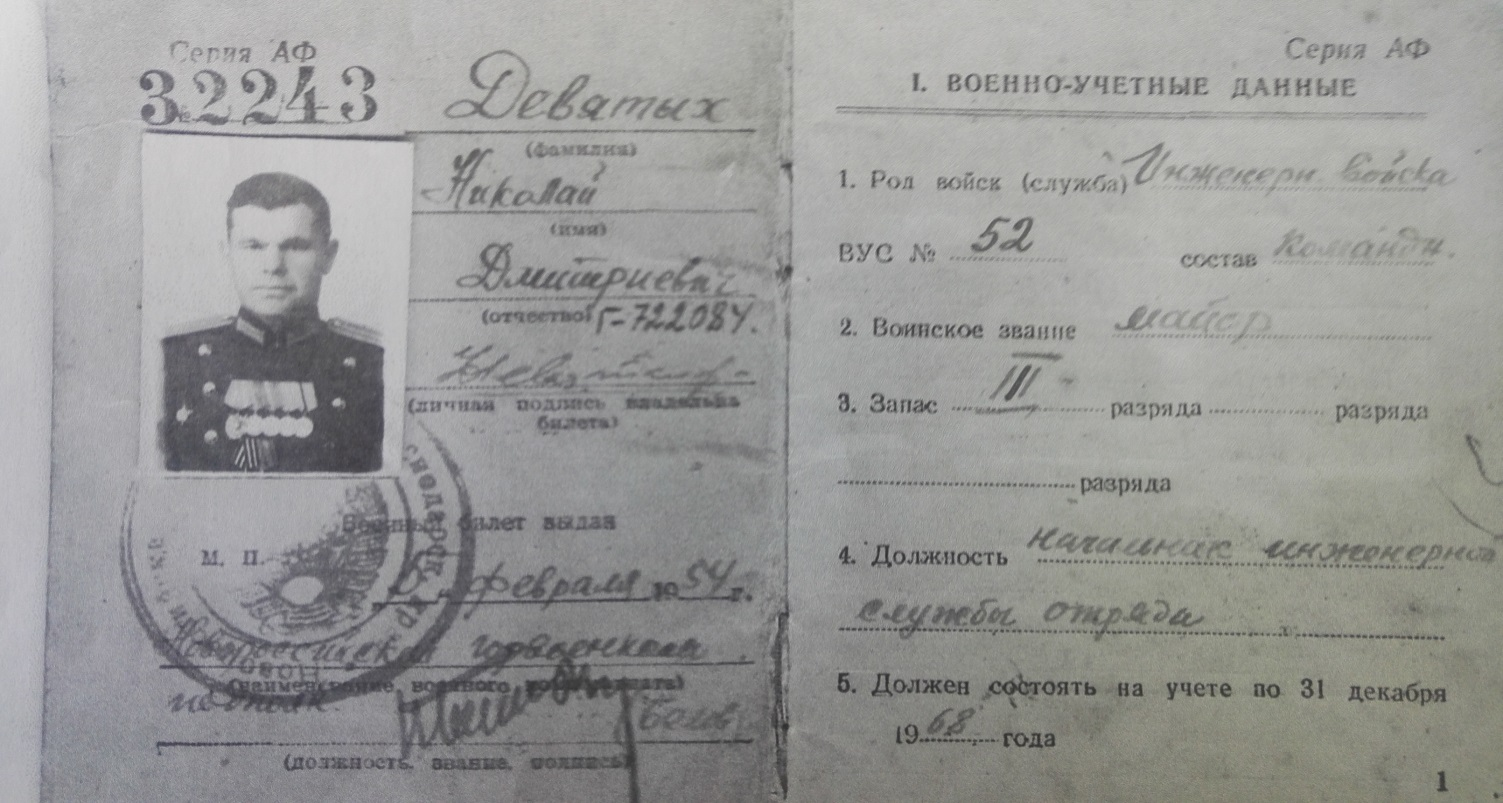 Серия АФ
32243
Девятых
(фамилия)
Николай
(имя)
Дмитриевич
(отчество) Г-722084.
(личная подпись владельца
билета)
Военный билет выдан
М. П.
февраля 1954 г.
Новороссийский горвоенком
(наименование военного комиссариата)
(должность, звание, подпись)
Серия АФ
I. ВОЕННО-УЧЕТНЫЕ ДАННЫЕ
1. Род войск (служба) Инженерн. войска
ВУС № 52 состав командн.
2. Воинское звание майор
3. Запас III разряда разряда
разряда
4. Должность начальник инженерной
службы отряда
5. Должен состоять на учете по 31 декабря
1968 года
1